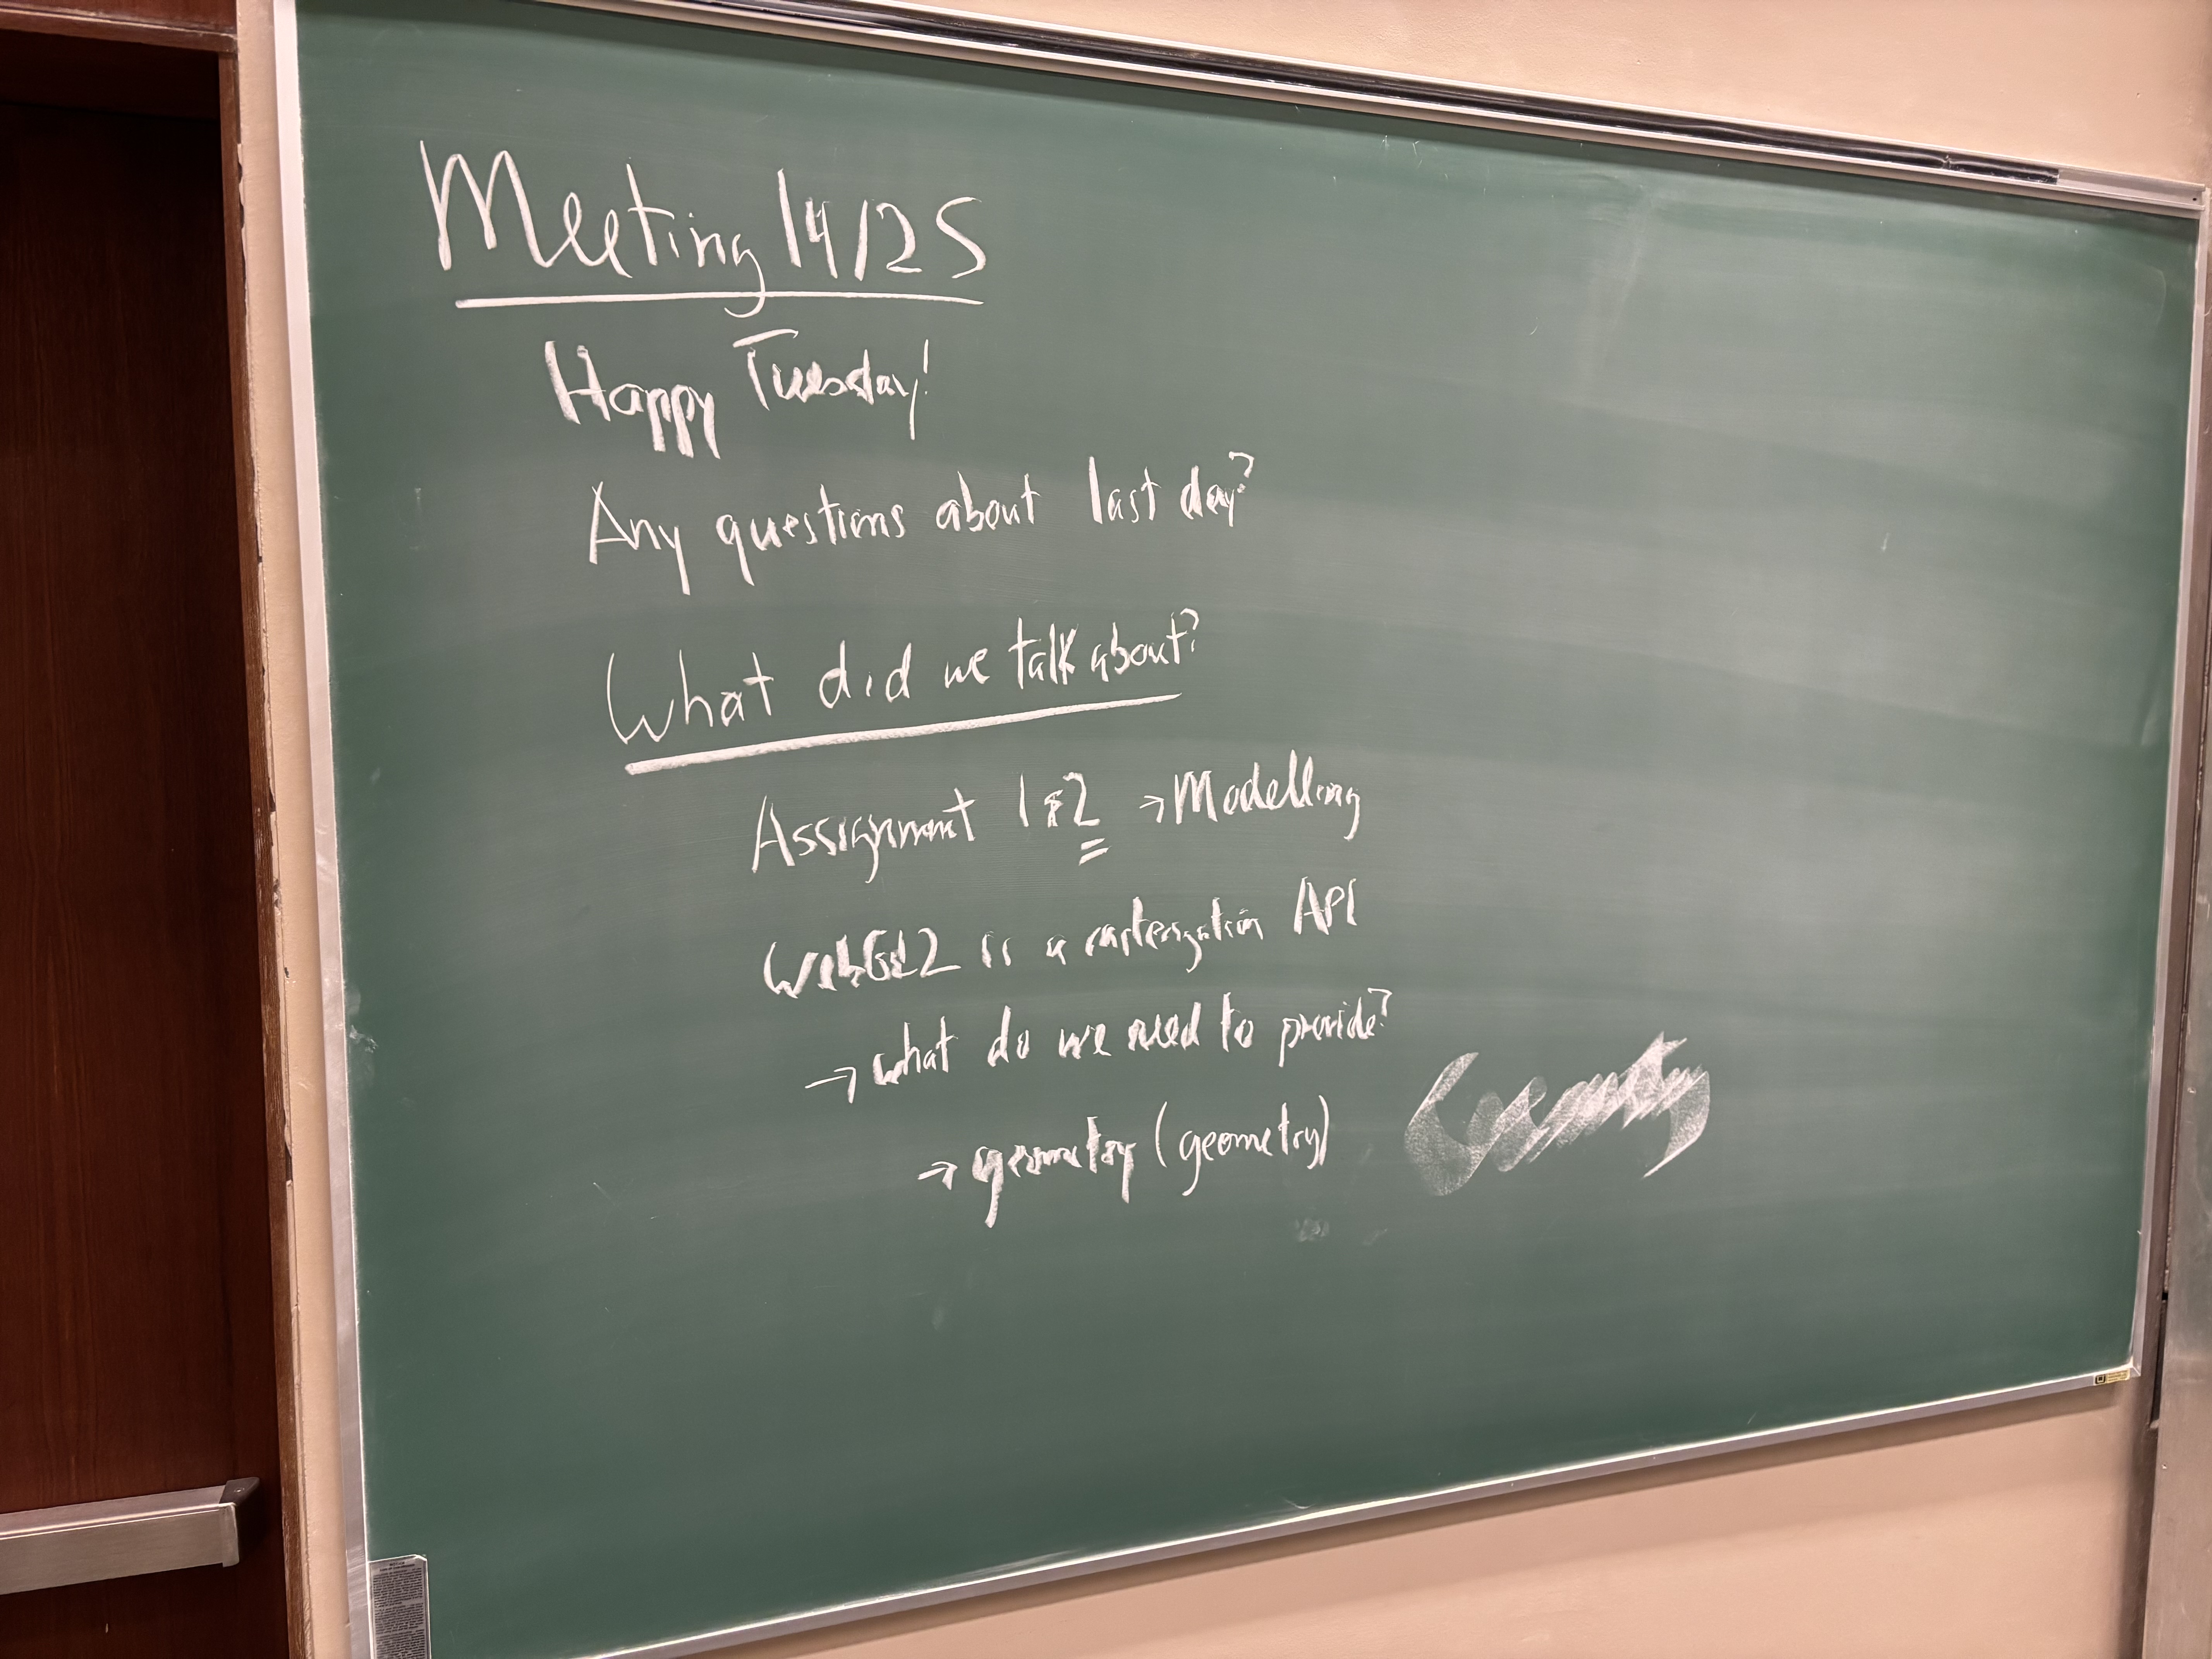 Meeting 14/25
Happy Tuesday!
Any questions about last day?
What did we talk about?
Assignment 1 & 2 → Modelling
WebGL2 is a rasterization API
→ what do we need to provide?
→ geometry (geometry)